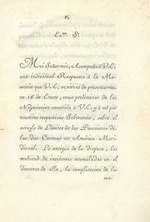 Exmo. Sr.
Mui Señor mio, Acompaño à V.E.
una individual Respuesta à la Me-
moria que V.E. se sirvió de presentarme
en 16 de Enero, como preliminar de la
Negociacion cometida à V.E. y à mi por
nuestros respectivos Soberanos, sobre el
arreglo de Límites de las Posesiones de
las dos Coronas en América Meri-
dional. Lo antiguo de la Disputa, la
multitud de incidentes acumulados en el
discurso de ella, la complicacion de la